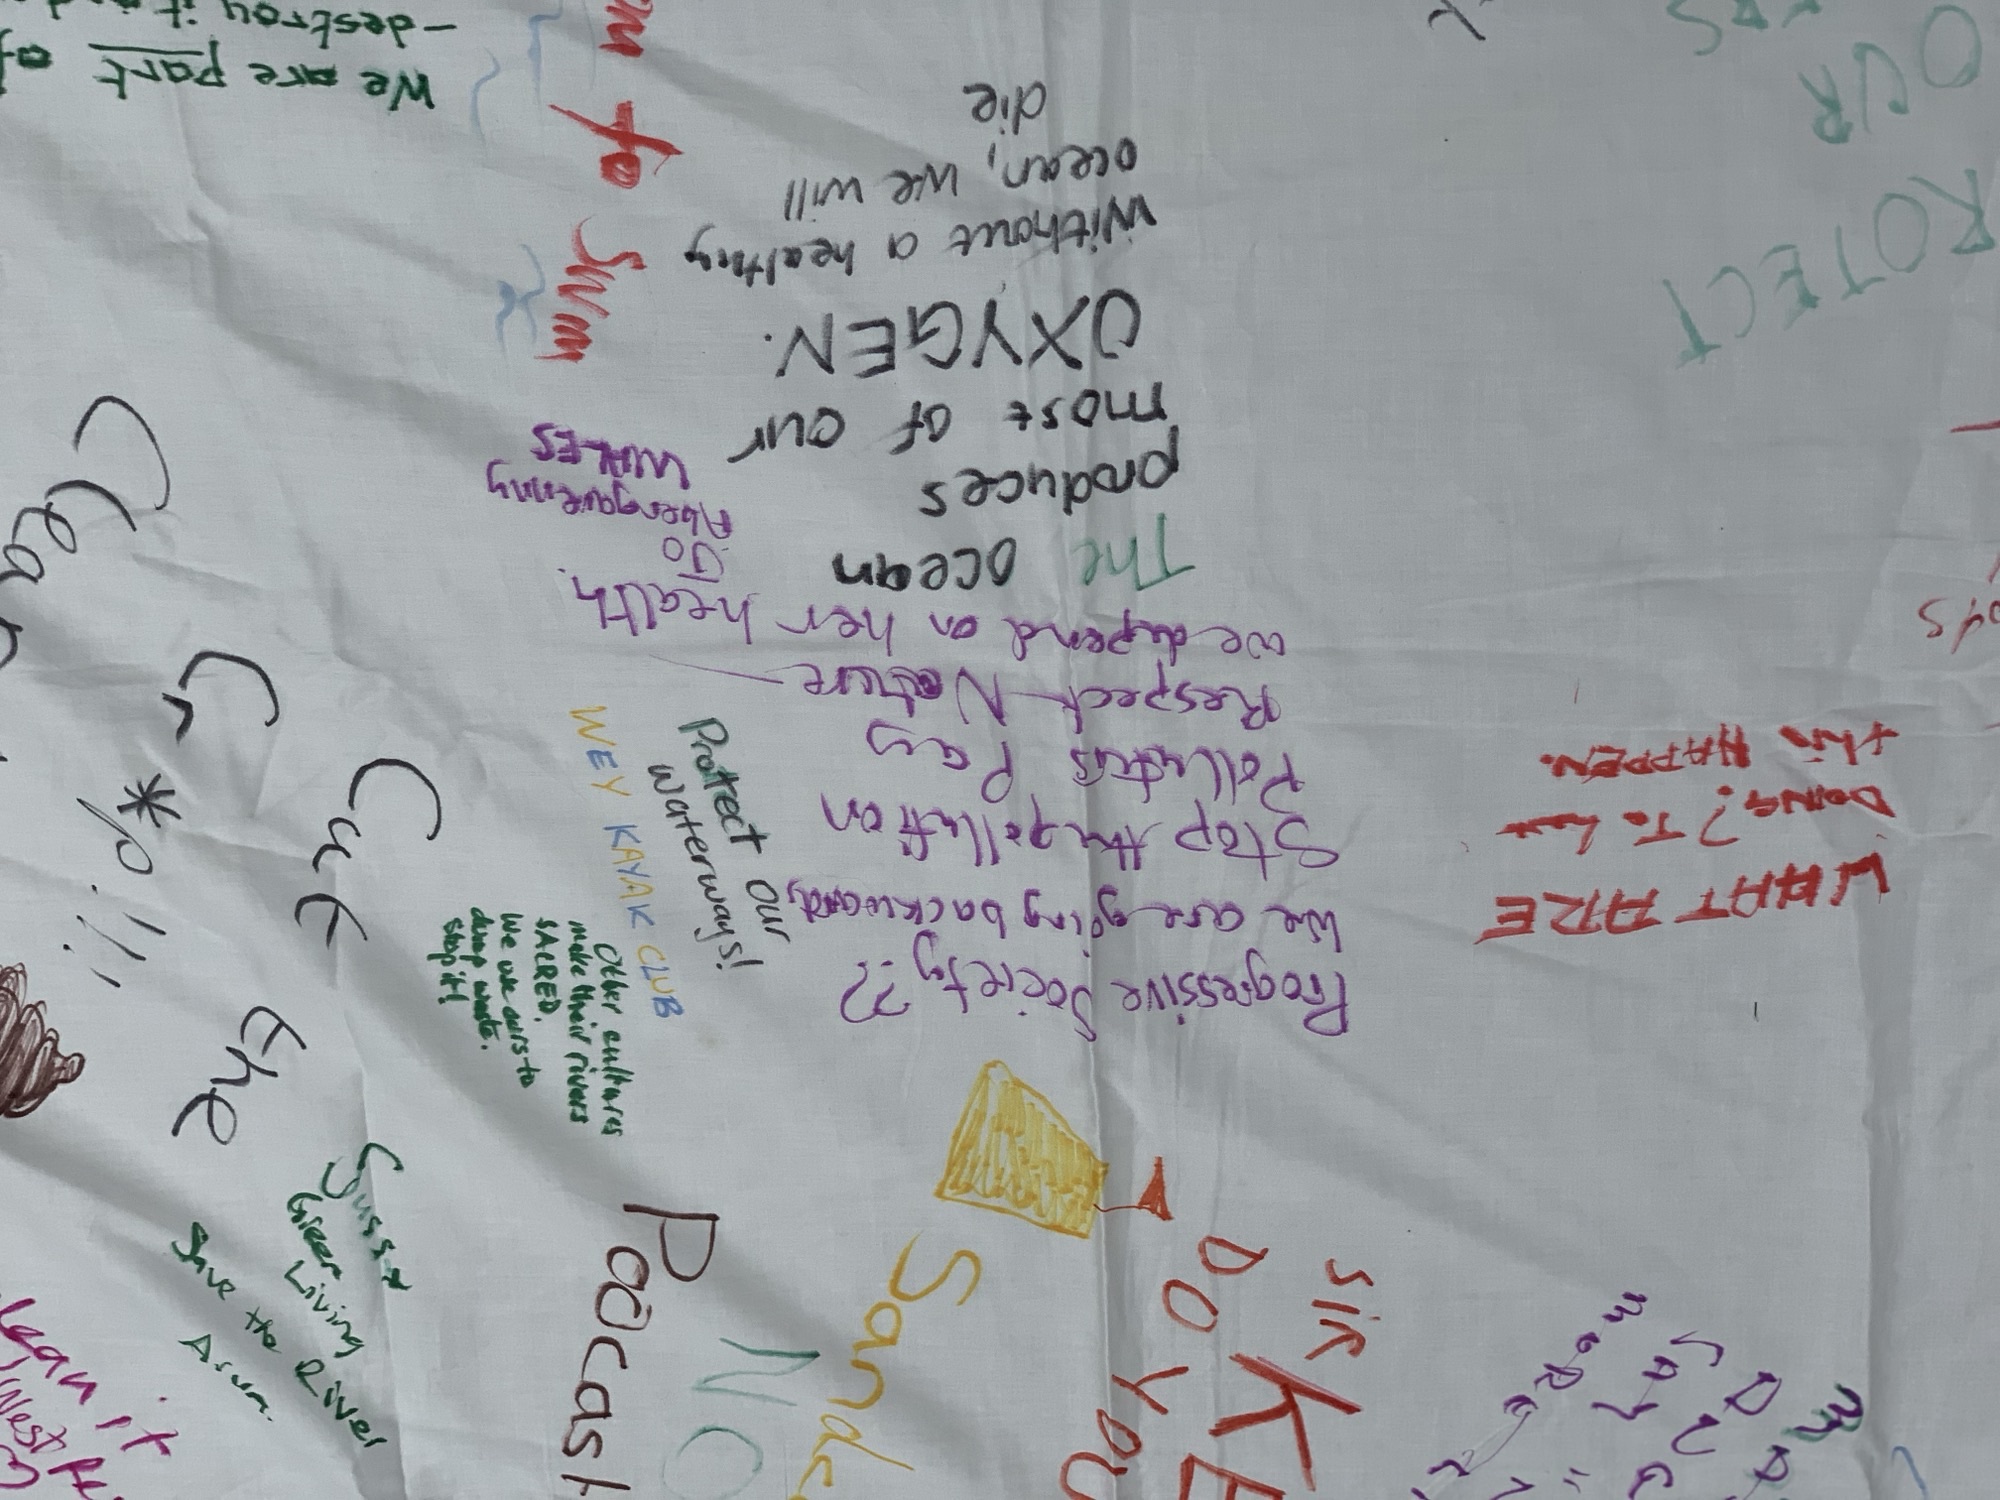 We are part of
- destroy it
to
Swim
The ocean
produces
most of our
OXYGEN.
Without a healthy
ocean, we will
die
PROTECT
OUR
Go
Abergavenny
WALES
Progressive Society??
We are going backwards
Stop the pollution
Polluters Pay
Respect Nature
we depend on her health.
WHAT ARE
DOING? To let
this HAPPEN.
Protect our
waterways!
WEY KAYAK CLUB
Other cultures
make their rivers
SACRED.
We use ours to
dump waste.
Stop it!
Clean
Cut
the
Cr*p!!!
Sussex
Green
Living
Save the River
Arun.
Clean it
West
Podcast
NO
Sande
DO YOU
SIR
KE